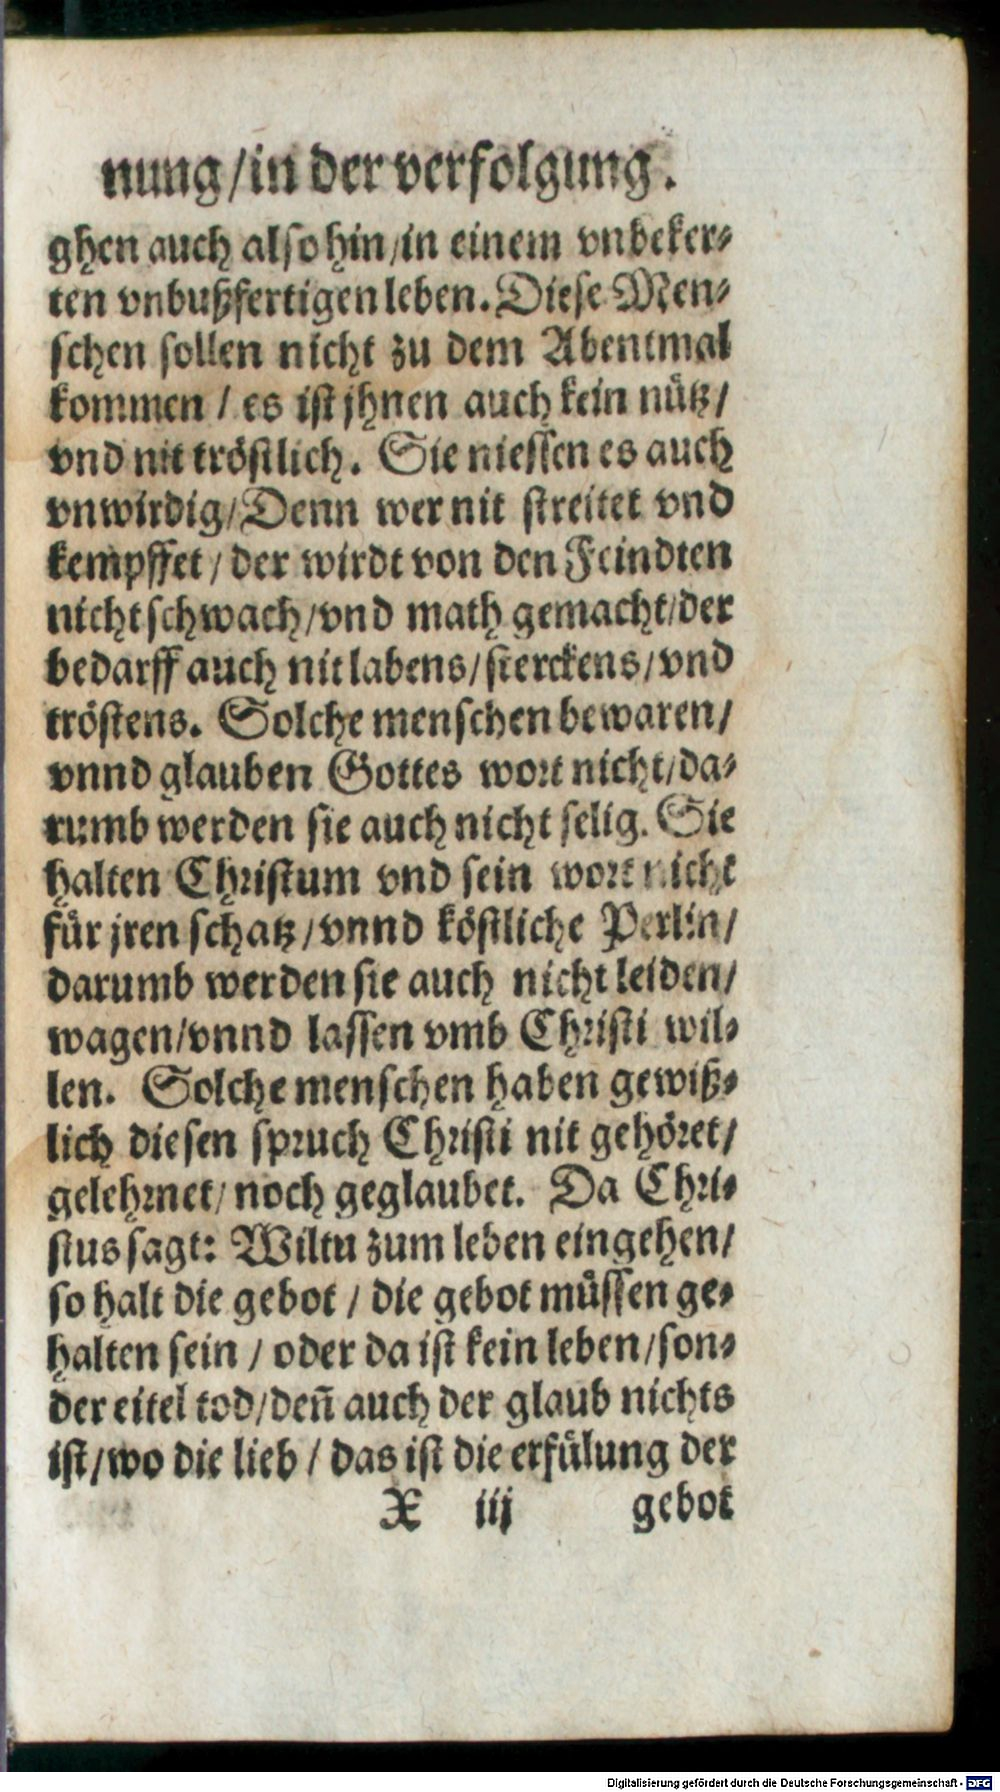 nung/in der verfolgung.
ghen auch also hin/in einem vnbeker⸗
ten vnbußfertigen leben. Diese Men⸗
schen sollen nicht zu dem Abentmal
kommen / es ist jhnen auch kein nütz/
vnd nit tröstlich. Sie niessen es auch
vnwirdig/Denn wer nit streitet vnd
kempffet / der wirdt von den Feindten
nicht schwach/vnd math gemacht/der
bedarff auch nit labens/sterckens/vnd
tröstens. Solche menschen bewaren/
vnnd glauben Gottes wort nicht/da⸗
rumb werden sie auch nicht selig. Sie
halten Christum vnd sein wort nicht
für jren schatz/vnnd köstliche Perlin/
darumb werden sie auch nicht leiden/
wagen/vnnd lassen vmb Christi wil⸗
len. Solche menschen haben gewiß⸗
lich diesen spruch Christi nit gehöret/
gelehrnet/noch geglaubet. Da Chri⸗
stus sagt: Wiltu zum leben eingehen/
so halt die gebot / die gebot müssen ge⸗
halten sein / oder da ist kein leben/son⸗
der eitel tod/deñ auch der glaub nichts
ist/wo die lieb / das ist die erfülung der
X iij gebot
Digitalisierung gefördert durch die Deutsche Forschungsgemeinschaft - DFG